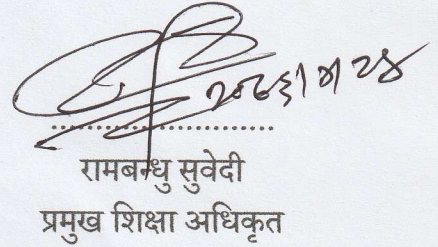 २०८३।४।२४
रामबन्धु सुवेदी
प्रमुख शिक्षा अधिकृत